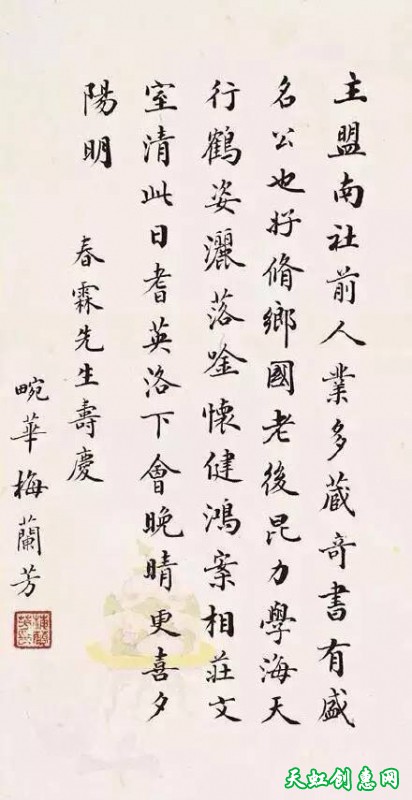 主盟南社前人業多蔵奇書有盛
名公也好脩鄉國老後昆力學海天
行鶴姿灑落唫懷健鴻案相莊文
室清此日耆英洛下會晚晴更喜夕
陽明
春霖先生壽慶
畹華梅蘭芳
天虹创惠网